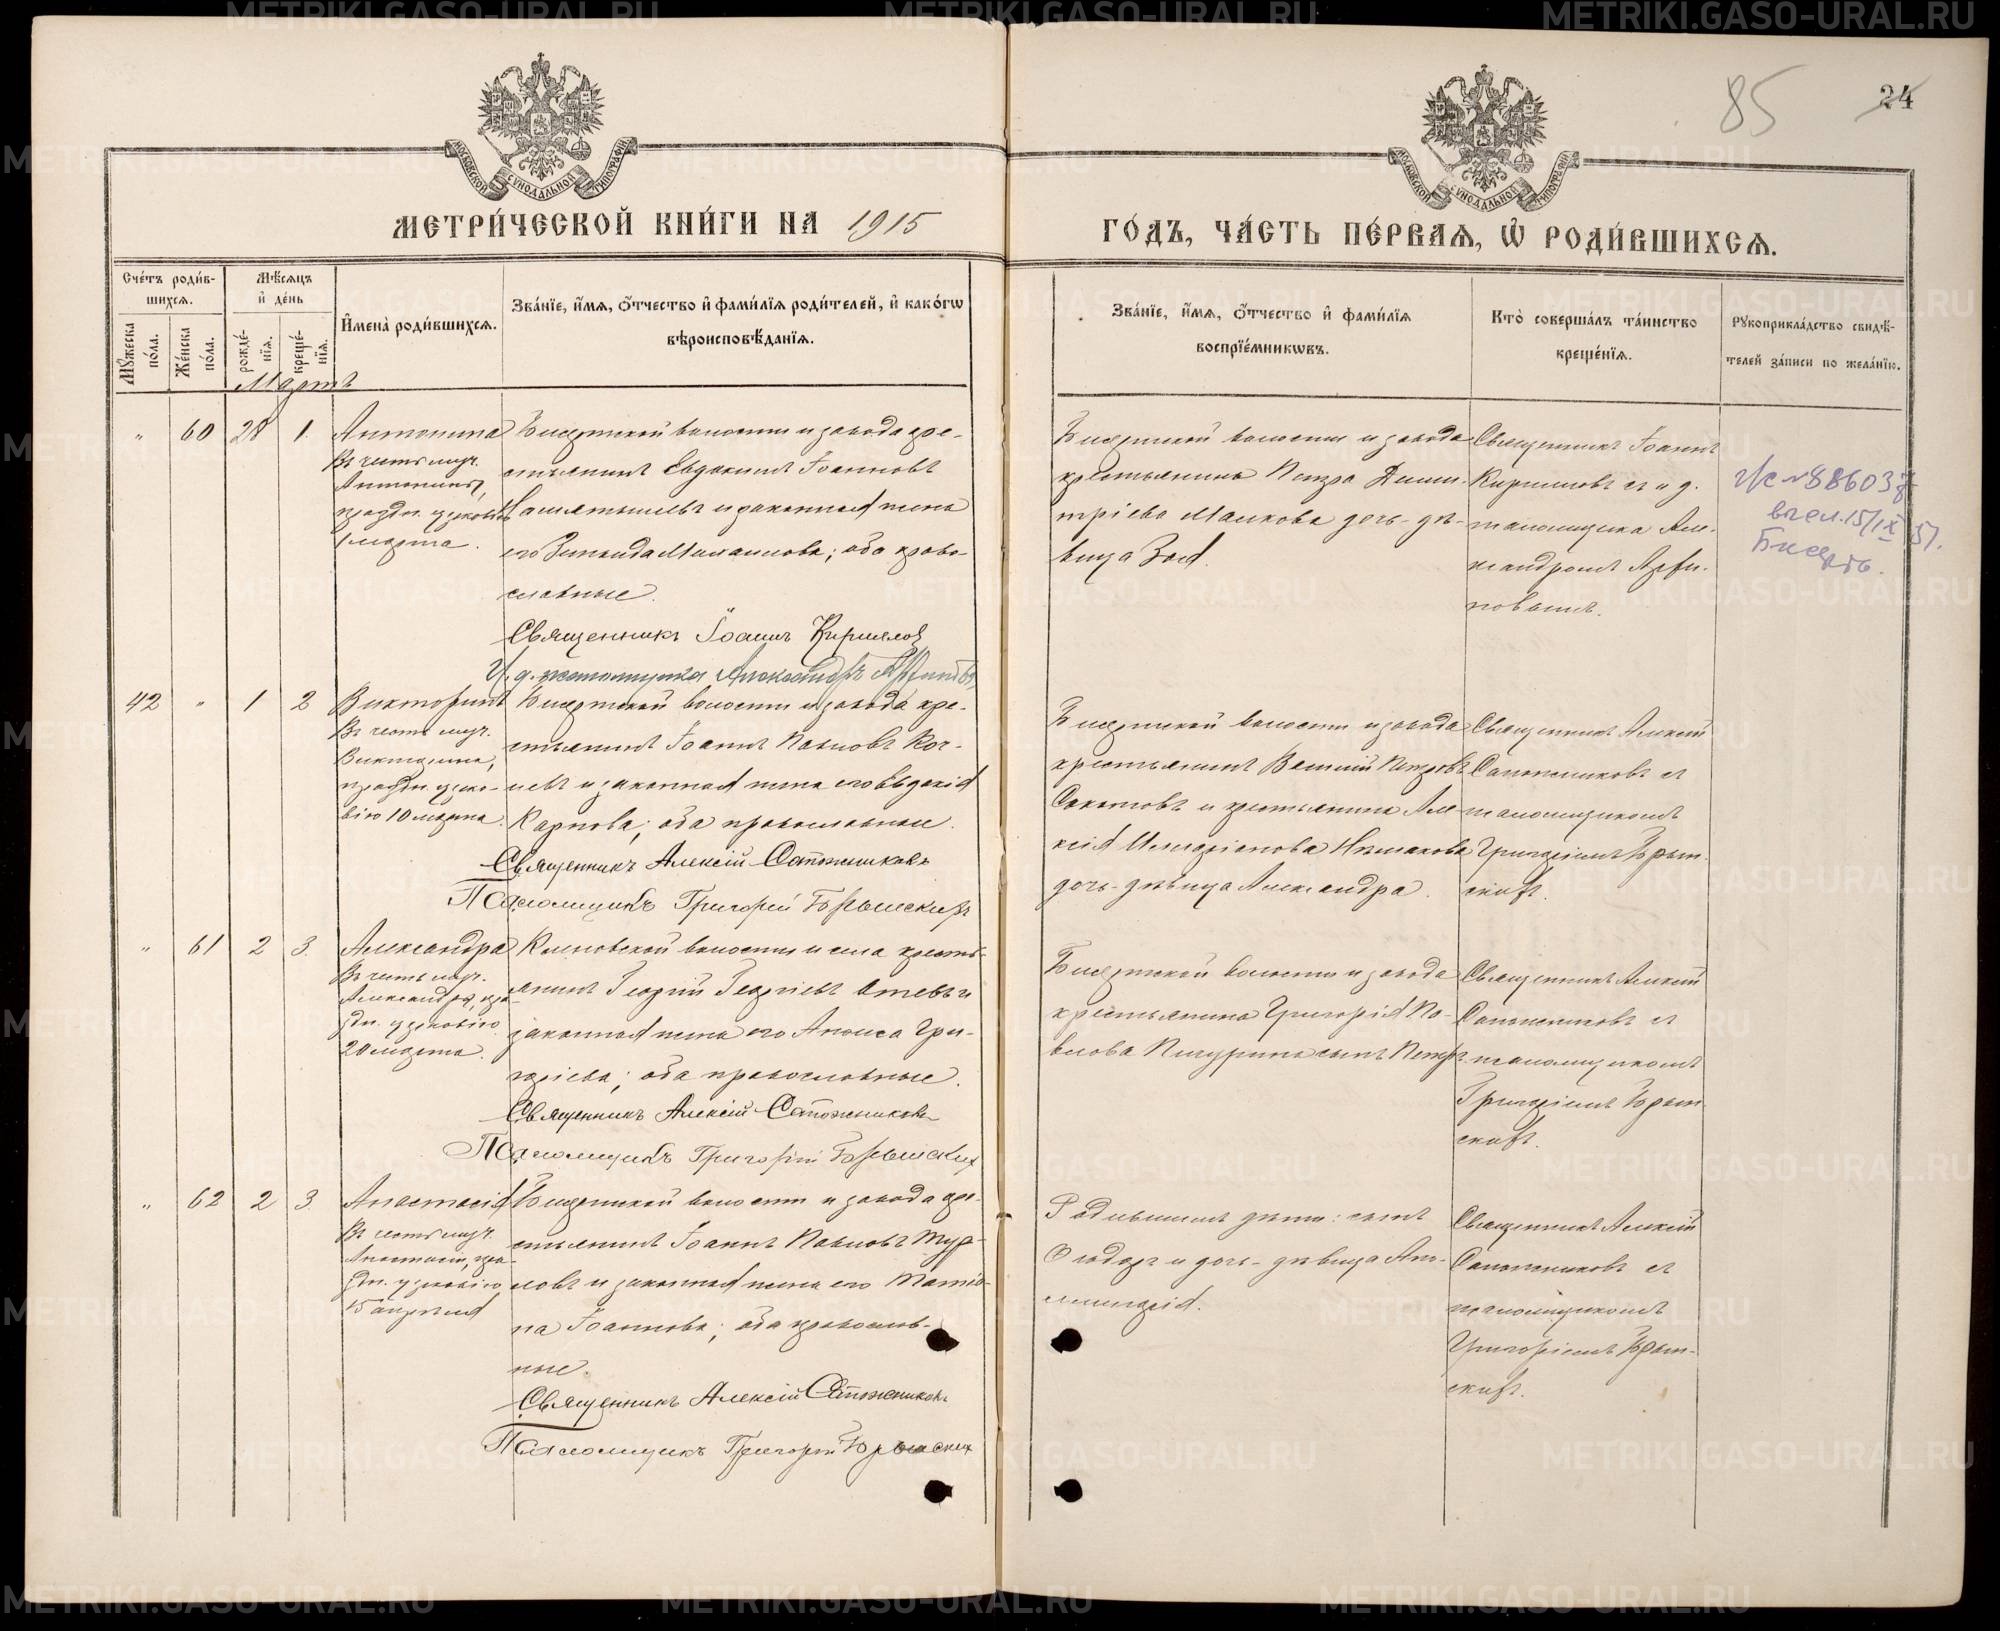 85
24
МОСКОВСКОЙ СУНОДАЛЬНОЙ ТИПОГРАФІИ
МОСКОВСКОЙ СУНОДАЛЬНОЙ ТИПОГРАФІИ
МЕТРИ́ЧЕСКОЙ КНИ́ГИ НА 1915
ГО́ДЪ, ЧА́СТЬ ПЕ́РВАѦ, Ѡ РОДИ́ВШИХСѦ.
Сче́тъ роди́в-
шихсѧ.
Мꙋжеска по́ла.
Же́нска по́ла.
Мѣ́сѧцъ
и҆ де́нь
рожде́-нїѧ.
креще́-нїѧ.
И҆мена̀ роди́вшихсѧ.
Зва́нїе, и҆́мѧ, ѻ҆́тчество и҆ фами́лїѧ роди́телей, и҆ како́гѡ
вѣроисповѣ́данїѧ.
Зва́нїе, и҆́мѧ, ѻ҆́тчество и҆ фами́лїѧ
воспрїе́мникѡвъ.
Кто̀ соверша́лъ та́инство
креще́нїѧ.
Рꙋкоприкла́дство свидѣ́-
телей за́писи по жела́нїю.
Мартъ
" 60 28 1. Антонина
Въ честь муч.
Антонины,
праздн. церковію
1 марта.
Бисертской волости и завода кре-
стьянинъ Евдокимъ Іоанновъ
и законная жена
его Зинаида Михаилова; оба право-
славные.
Священникъ Іоаннъ Кирилловъ
И. д. псаломщика Александръ
Бисертской волости и завода
крестьянина Петра Дими-
тріева Малкова дочь-дѣ-
вица Зоя.
Священникъ Іоаннъ
Кирилловъ съ и. д.
псаломщика Але-
ксандромъ
г/с № 88603
выд. 15/IX 51.
Бисерть.
42 " 1 2 Викторинъ
Въ честь муч.
Викторина,
праздн. церко-
вію 10 марта.
Бисертской волости и завода кре-
стьянинъ Іоаннъ Павловъ Коч-
невъ и законная жена его Евдокія
Карпова; оба православные.
Священникъ Алексій Сапожниковъ
Псаломщикъ Григорій
Бисертской волости и завода
крестьянинъ Василій Петровъ
и крестьянина Але-
ксія дочь-дѣвица Александра.
Священникъ Алексій
Сапожниковъ съ
псаломщикомъ
Григоріемъ
" 61 2 3. Александра
Въ честь муч.
Александры, пра-
здн. церковію
20 марта.
Кленовской волости и села кресть-
янинъ Георгій Георгіевъ и
законная жена его Анфиса Гри-
горіева; оба православные.
Священникъ Алексій Сапожниковъ
Псаломщикъ Григорій
Бисертской волости и завода
крестьянина Григорія Па-
влова Пичугина сынъ Петръ
Священникъ Алексій
Сапожниковъ съ
псаломщикомъ
Григоріемъ
" 62 2 3. Анастасія
Въ честь муч.
Анастасіи, пра-
здн. церковію
15 апрѣля
Бисертской волости и завода кре-
стьянинъ Іоаннъ Павловъ
и законная жена его Татіа-
на Іоаннова; оба православ-
ные.
Священникъ Алексій Сапожниковъ
Псаломщикъ Григорій
сынъ
Ѳеодоръ и дочь-дѣвица
Священникъ Алексій
Сапожниковъ съ
псаломщикомъ
Григоріемъ